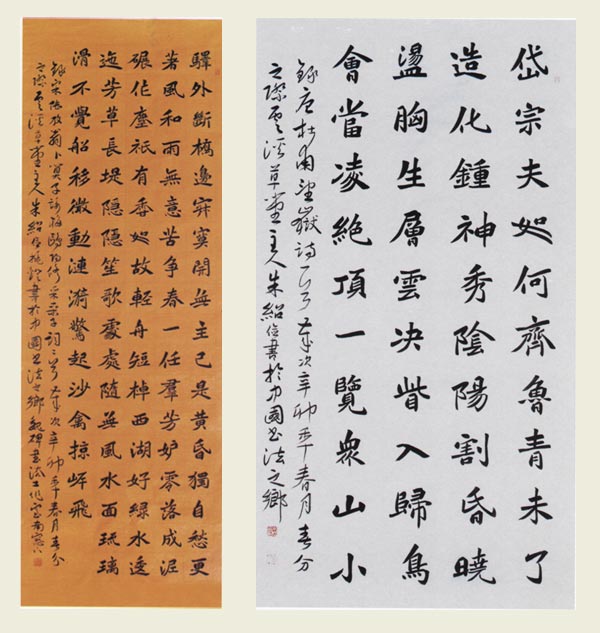 岱宗夫如何齊魯青未了
造化鍾神秀陰陽割昏曉
盪胸生層雲决眥入歸鳥
會當凌絶頂一覽衆山小
錄唐杜甫望嶽詩一首歲次辛卯年春月春分
之際草堂主人朱紹書於中國書法之鄉
驛外斷橋邊寂寞開無主已是黄昏獨自愁更
著風和雨無意苦爭春一任羣芳妒零落成泥
碾作塵祇有香如故輕舟短棹西湖好綠水逶
迤芳草長堤隱隱笙歌處處隨無風水面琉璃
滑不覺船移微動漣漪驚起沙禽掠岸飛
錄宋陸放翁卜算子詠梅歐陽修采桑子詞二首歲次辛卯年春月春分
之際草堂主人朱紹書於中國書法之鄉